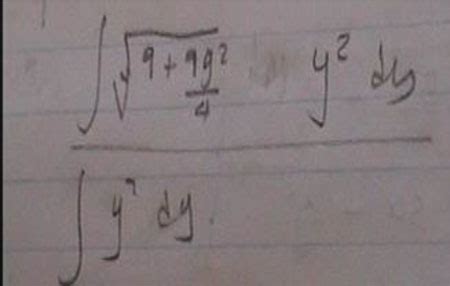 ∫ √(9 + 9y²/4) y² dy
∫ y² dy.